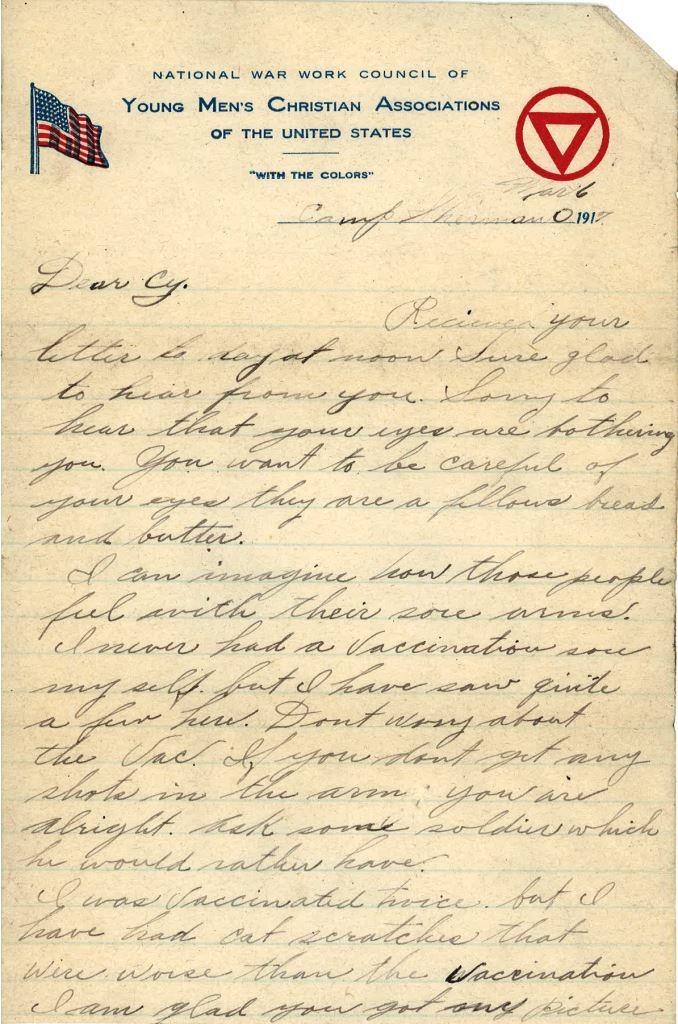 NATIONAL WAR WORK COUNCIL OF
YOUNG MEN'S CHRISTIAN ASSOCIATIONS
OF THE UNITED STATES
"WITH THE COLORS"
Mar 6
Camp Sherman O. 191
Dear Cy.
Recieved your
letter to day at noon Sure glad
to hear from you. Sorry to
hear that your eyes are bothering
you. You want to be careful of
your eyes they are a fellows bread
and butter.
I can imagine how those people
feel with their sore arms.
I never had a Vaccination sore
my self. but I have saw quite
a few here. Dont worry about
the Vac. If you dont get any
shots in the arm, you are
alright. Ask some soldier which
he would rather have.
I was Vaccinated twice. but I
have had cat scratches that
were worse than the Vaccination
I am glad you got my picture